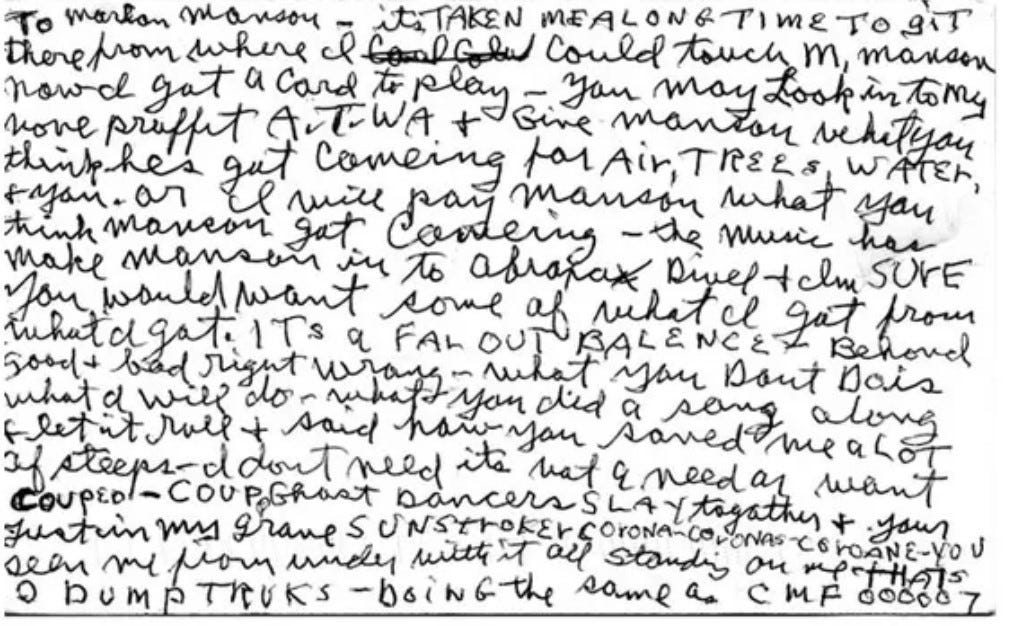 To Marlon Manson – its TAKEN ME A LONG TIME TO giT
there from where I Could touch M, manson
now I got a Card to play – you may Look in to My
none proffit A.T.W.A + Give manson what you
think hes got Comeing for Air, TREEs, WATEr,
+ you. or I will pay manson what you
think manson got Comeing – the music has
make manson in to abrapax Divel + Im SURE
you would want some of what I got from
what I got. ITs a FAL OUT BALENCE – Behond
good + bad right wrong – what you Dont Dois
what I will do – what you did a song along
+ let it roll + said how you saved me a LOT
of steeps – I dont need its not a need or want
COUPED – COUP Ghost DANCErs SLAY togather + your
just in my grave SUNSTrOKEr COrONA-COrONAS-COrOANE-YOU
seen me from under with it all standing on me THATS
2 DUMPTRUKS – DOING the same as CMF 000007